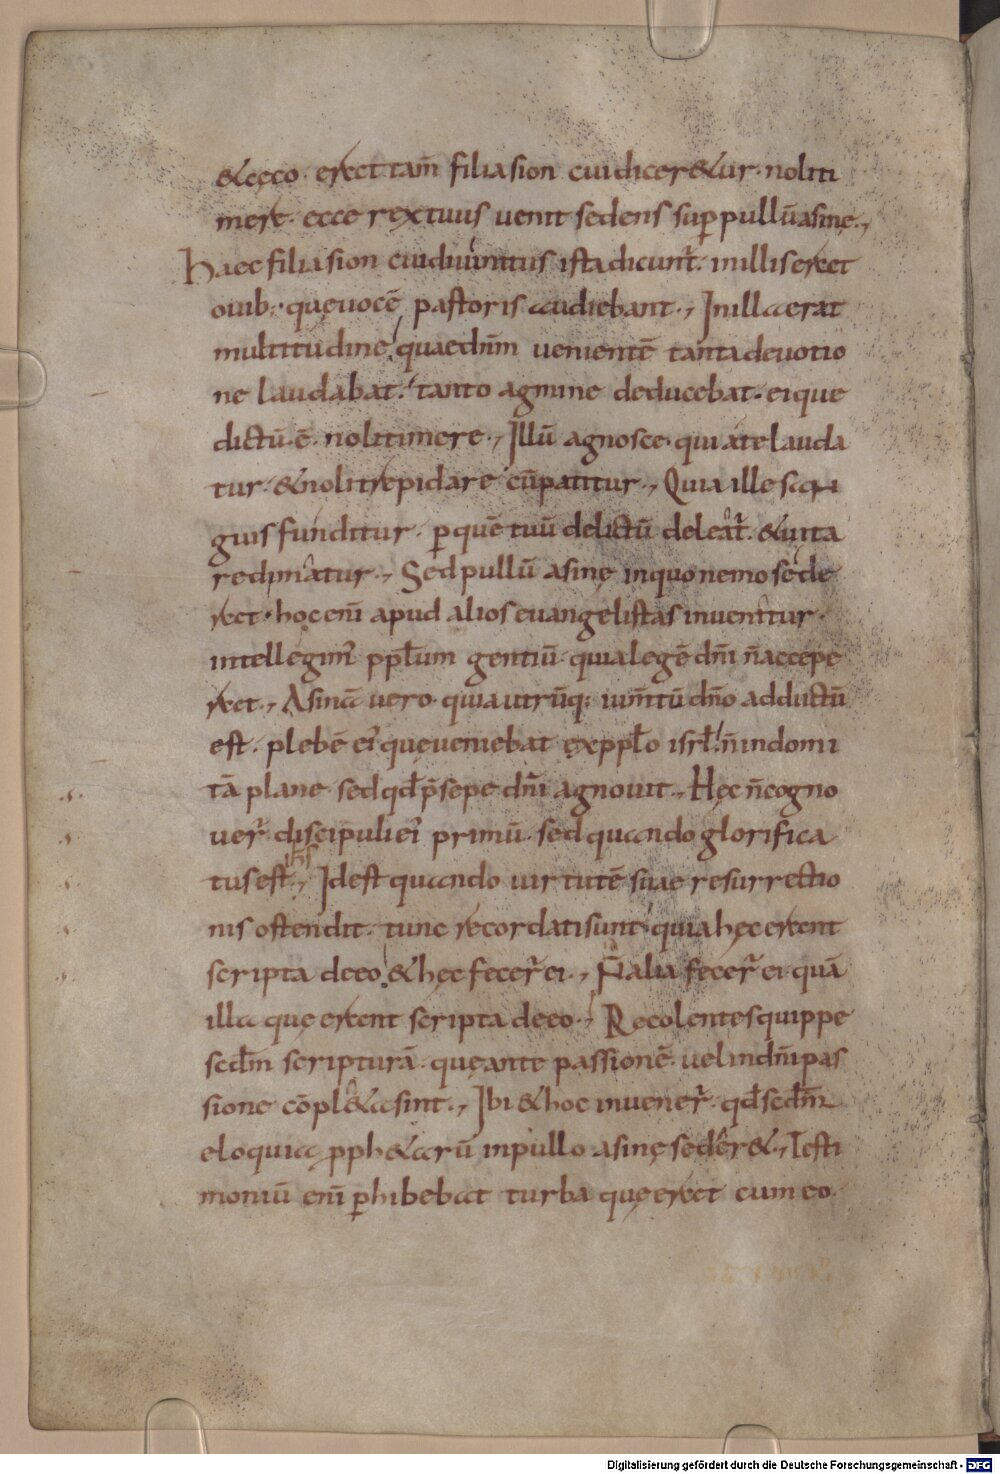 & cęco· erat tam̄ filia sion cui dicer&ur· noli ti
mere· ecce rex tuus uenit sedens sup pullū asinę·,
Haec filia sion cui diuinitus ista dicunt̄· in illis erat
ouib;· quę uocē pastoris audiebant·, In illa erat
multitudine quae dn̄m uenientē tanta deuotio
ne laudabat· tanto agmine deducebat· eique
dictū·ē· noli timere·, Illū agnosce· qui a te lauda
tur· & noli trepidare cū patitur·, Quia ille san
guis funditur· p quē tuū delictū deleat̄· & uita
redimatur·, Sed pullū asinę in quo nemo sede
rat· hoc eni̅ apud alios euangelistas inuenitur·
intellegim' ppl̄um gentiū· quia legē dn̄i n̄ accepe
rat·, Asinā uero· quia utrūq; ium̄tū dn̄o adductū
est· plebē ei' quę ueniebat ex ppl̄o isrl̄· n̄ indomi
tā plane sed qd̄ p̄sepe dn̄i agnouit·, Hęc n̄ cogno
uer̄ discipuli ei' primū· sed quando glorifica
tus est ihs·, Id est quando uirtutē suae resurrectio
nis ostendit· tunc recordati sunt quia hęc erant
scripta de eo & hęc fecer̄ ei·, N̄ alia fecer̄ ei quā
illa quę erant scripta de eo·, Recolentes quippe
scdm̄ scripturā· quę ante passionē uel in dn̄i pas
sione cōpl&a sint·, Ibi & hoc inuener̄· qd̄ scdm̄
eloquia pph&arū in pullo asinę seder&·, Testi
moniū eni̅ phibebat turba quę erat cum eo·
Digitalisierung gefördert durch die Deutsche Forschungsgemeinschaft - DFG